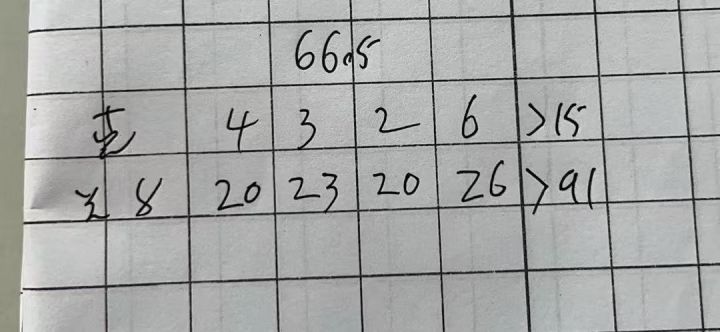 66.5
4 3 2 6 >15
8 20 23 20 26 >91